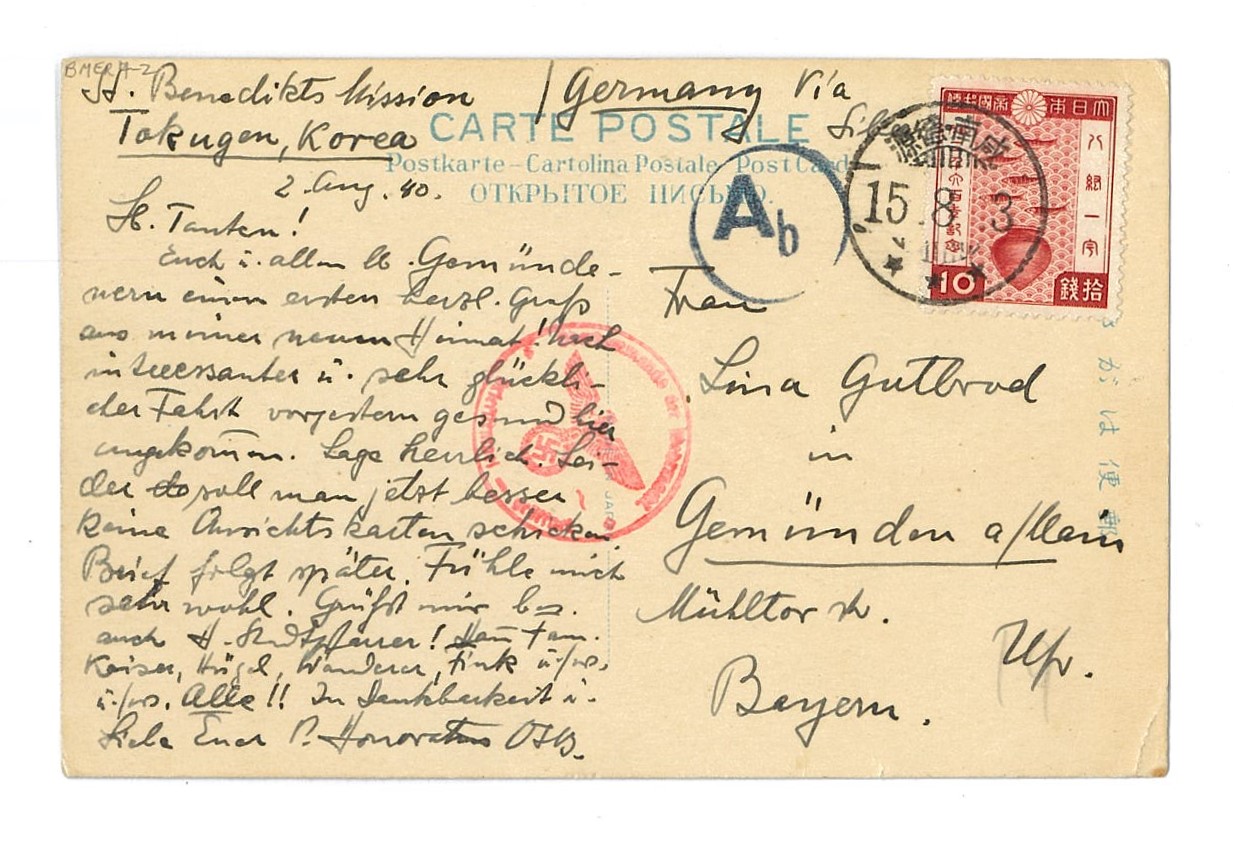 BMERA-2
St. Benedikts Mission
Tokugen, Korea
Germany Via
Sib
CARTE POSTALE
Postkarte – Cartolina Postale Post Card
ОТКРЫТОЕ ПИСЬМО.
2. Aug. 40.
Lb. Tanten!
Euch u. allen lb. Gemünde-
nern einen ersten herzl. Gruß
aus meiner neuen Heimat! Nach
interessanter u. sehr glückli-
cher Fahrt vorgestern gesund hier
angekommen. Lage herrlich. Lei-
der soll man jetzt besser
keine Ansichtskarten schicken.
Brief folgt später. Fühle mich
sehr wohl. Grüßt mir bes.
auch H. Stadtpfarrer! Fam.
Kaiser, Hügel, Wanderer, Fink u.
Alle!! In Dankbarkeit u.
Liebe Euer P. Honoratus OSB.
Ab
15.8.3
大日本帝國郵便
八紘一宇
10
拾錢
Frau
Lina Gutbrod
in
Gemünden a/Main
Mühltorstr.
Ufr.
Bayern.
きがは便郵